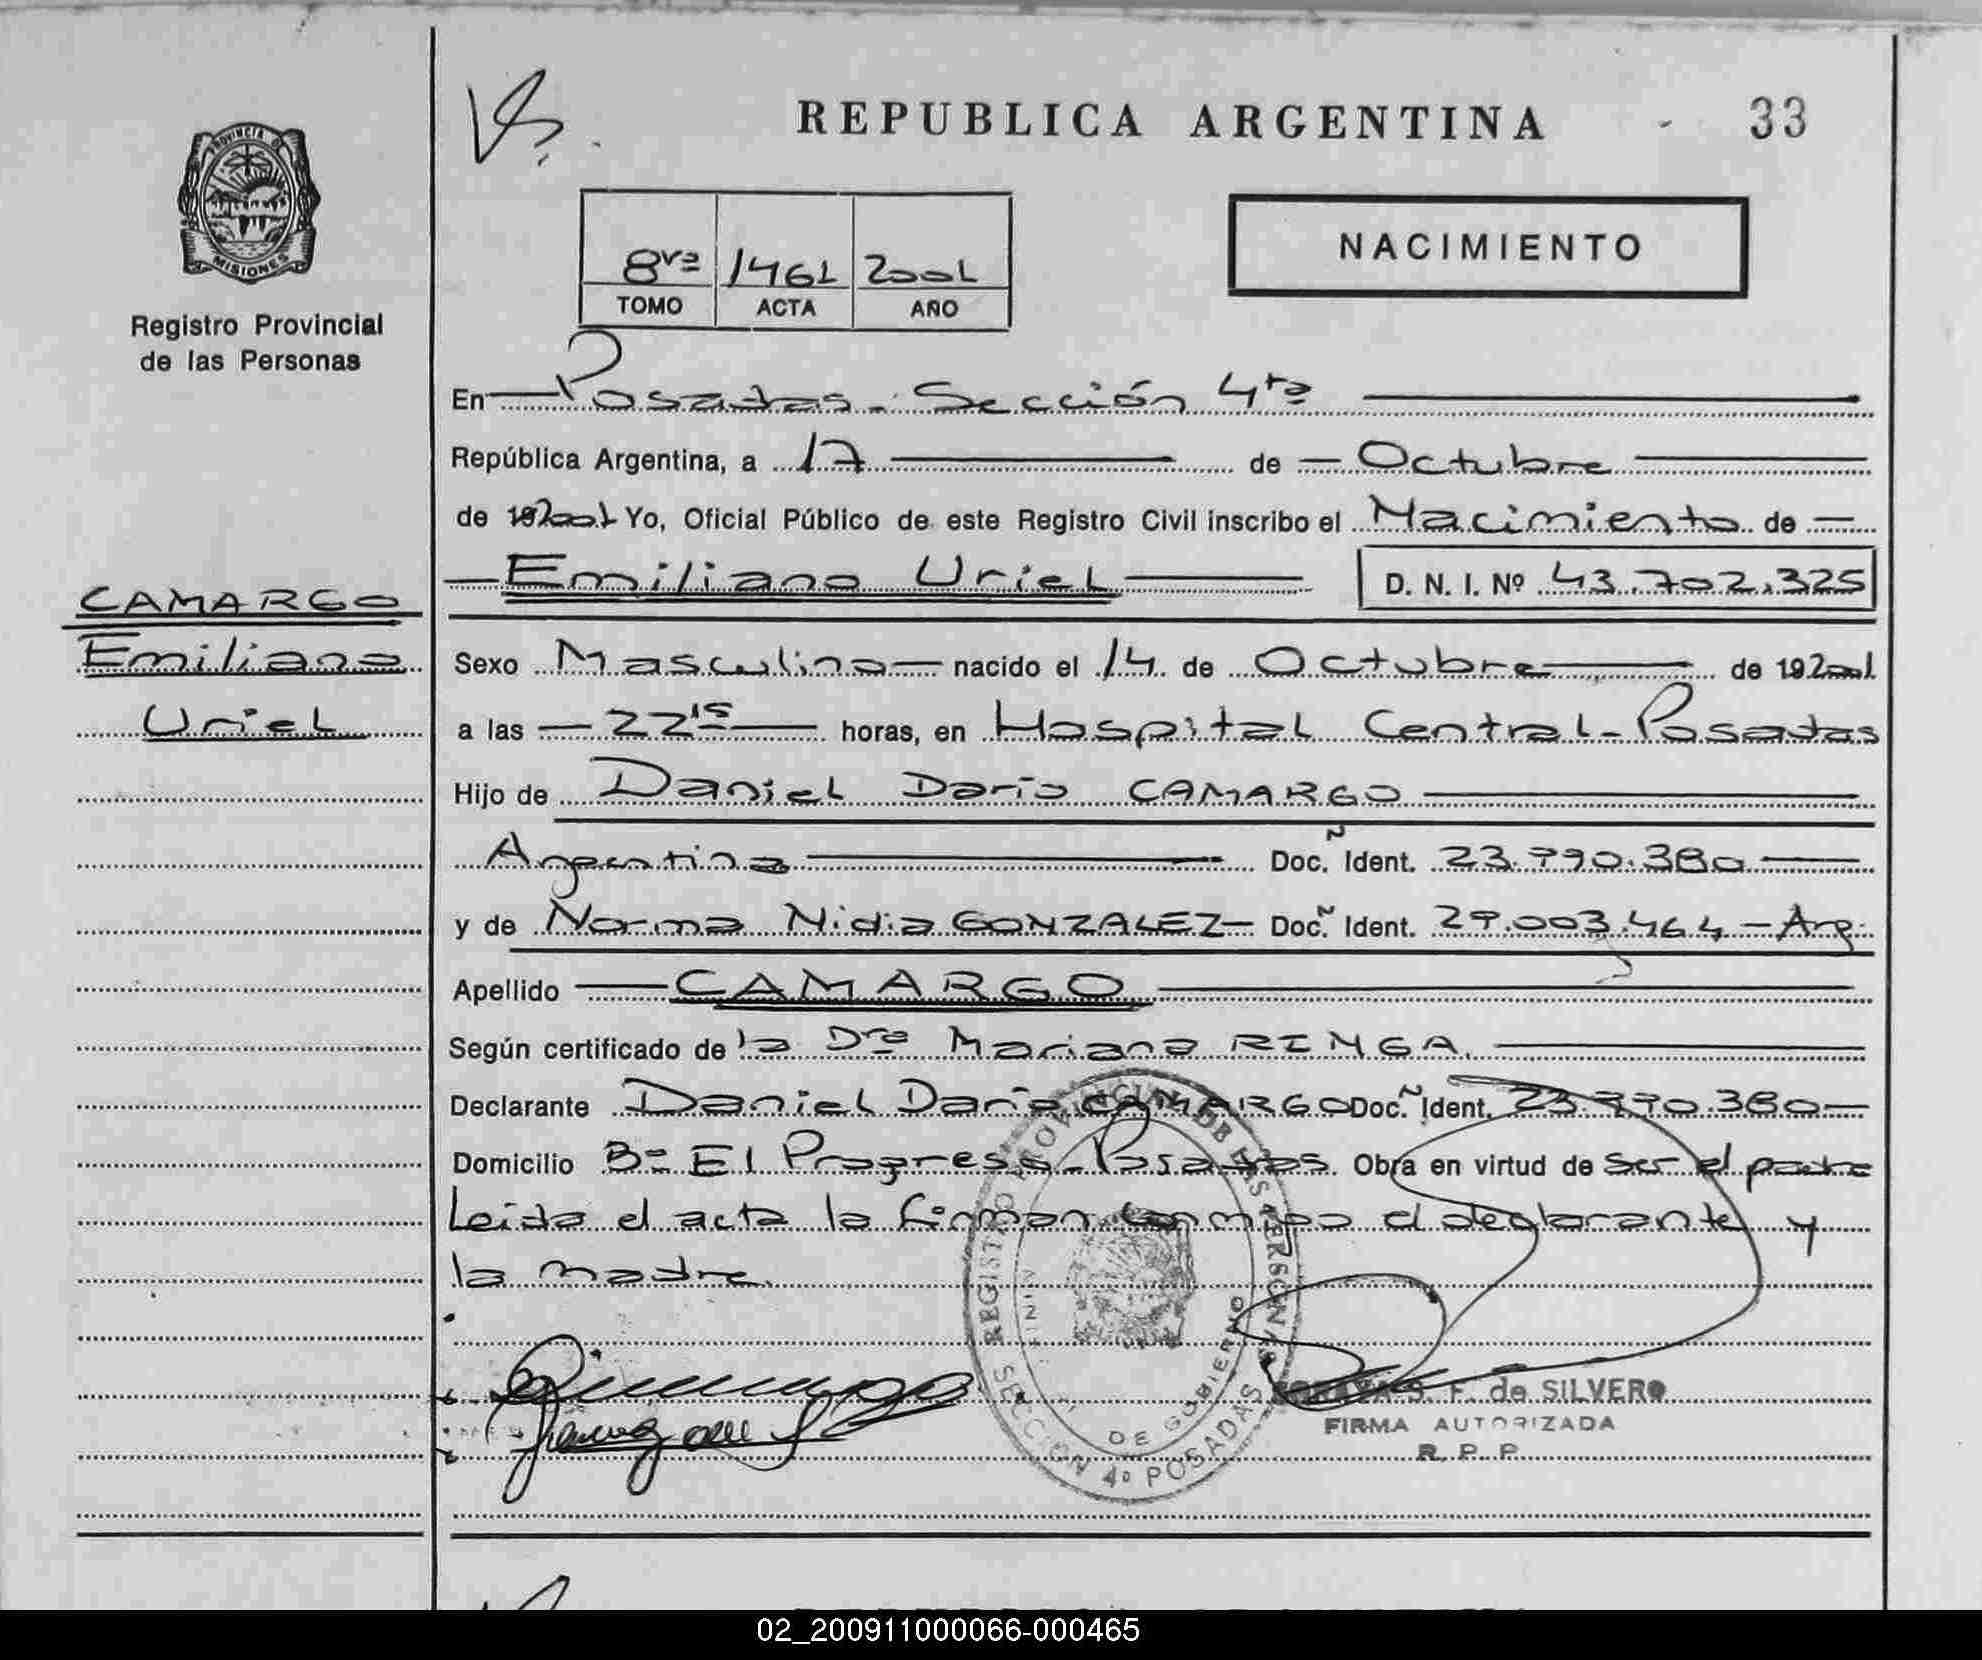 REPUBLICA ARGENTINA - 33
PROVINCIA DE MISIONES
Registro Provincial
de las Personas
8va 1461 2001
TOMO ACTA AÑO
NACIMIENTO
En Posadas - Sección 4ta
República Argentina, a 17 de Octubre
de 192001 Yo, Oficial Público de este Registro Civil inscribo el Nacimiento de
Emiliano Uriel D. N. I. Nº 43.702.325
CAMARGO
Emiliano
Uriel
Sexo Masculino nacido el 14 de Octubre de 192001
a las 22 15 horas, en Hospital Central - Posadas
Hijo de Daniel Dario CAMARGO
Argentina Doc. Ñ Ident. 23.990.380
y de Norma Nidia GONZALEZ Doc. Ñ Ident. 29.003.464 - Arg.
Apellido CAMARGO
Según certificado de la Dra Mariana RINGA.
Declarante Daniel Dario CAMARGO Doc. Ñ Ident. 23.990.380
Domicilio Bº El Progreso - Posadas. Obra en virtud de ser el padre
Leida el acta la firman conmigo el declarante y
la madre.
REGISTRO PROVINCIAL DE LAS PERSONAS
DE GOBIERNO
SECCION 4º POSADAS
S. F. de SILVERO
FIRMA AUTORIZADA
R. P. P.
02_200911000066-000465